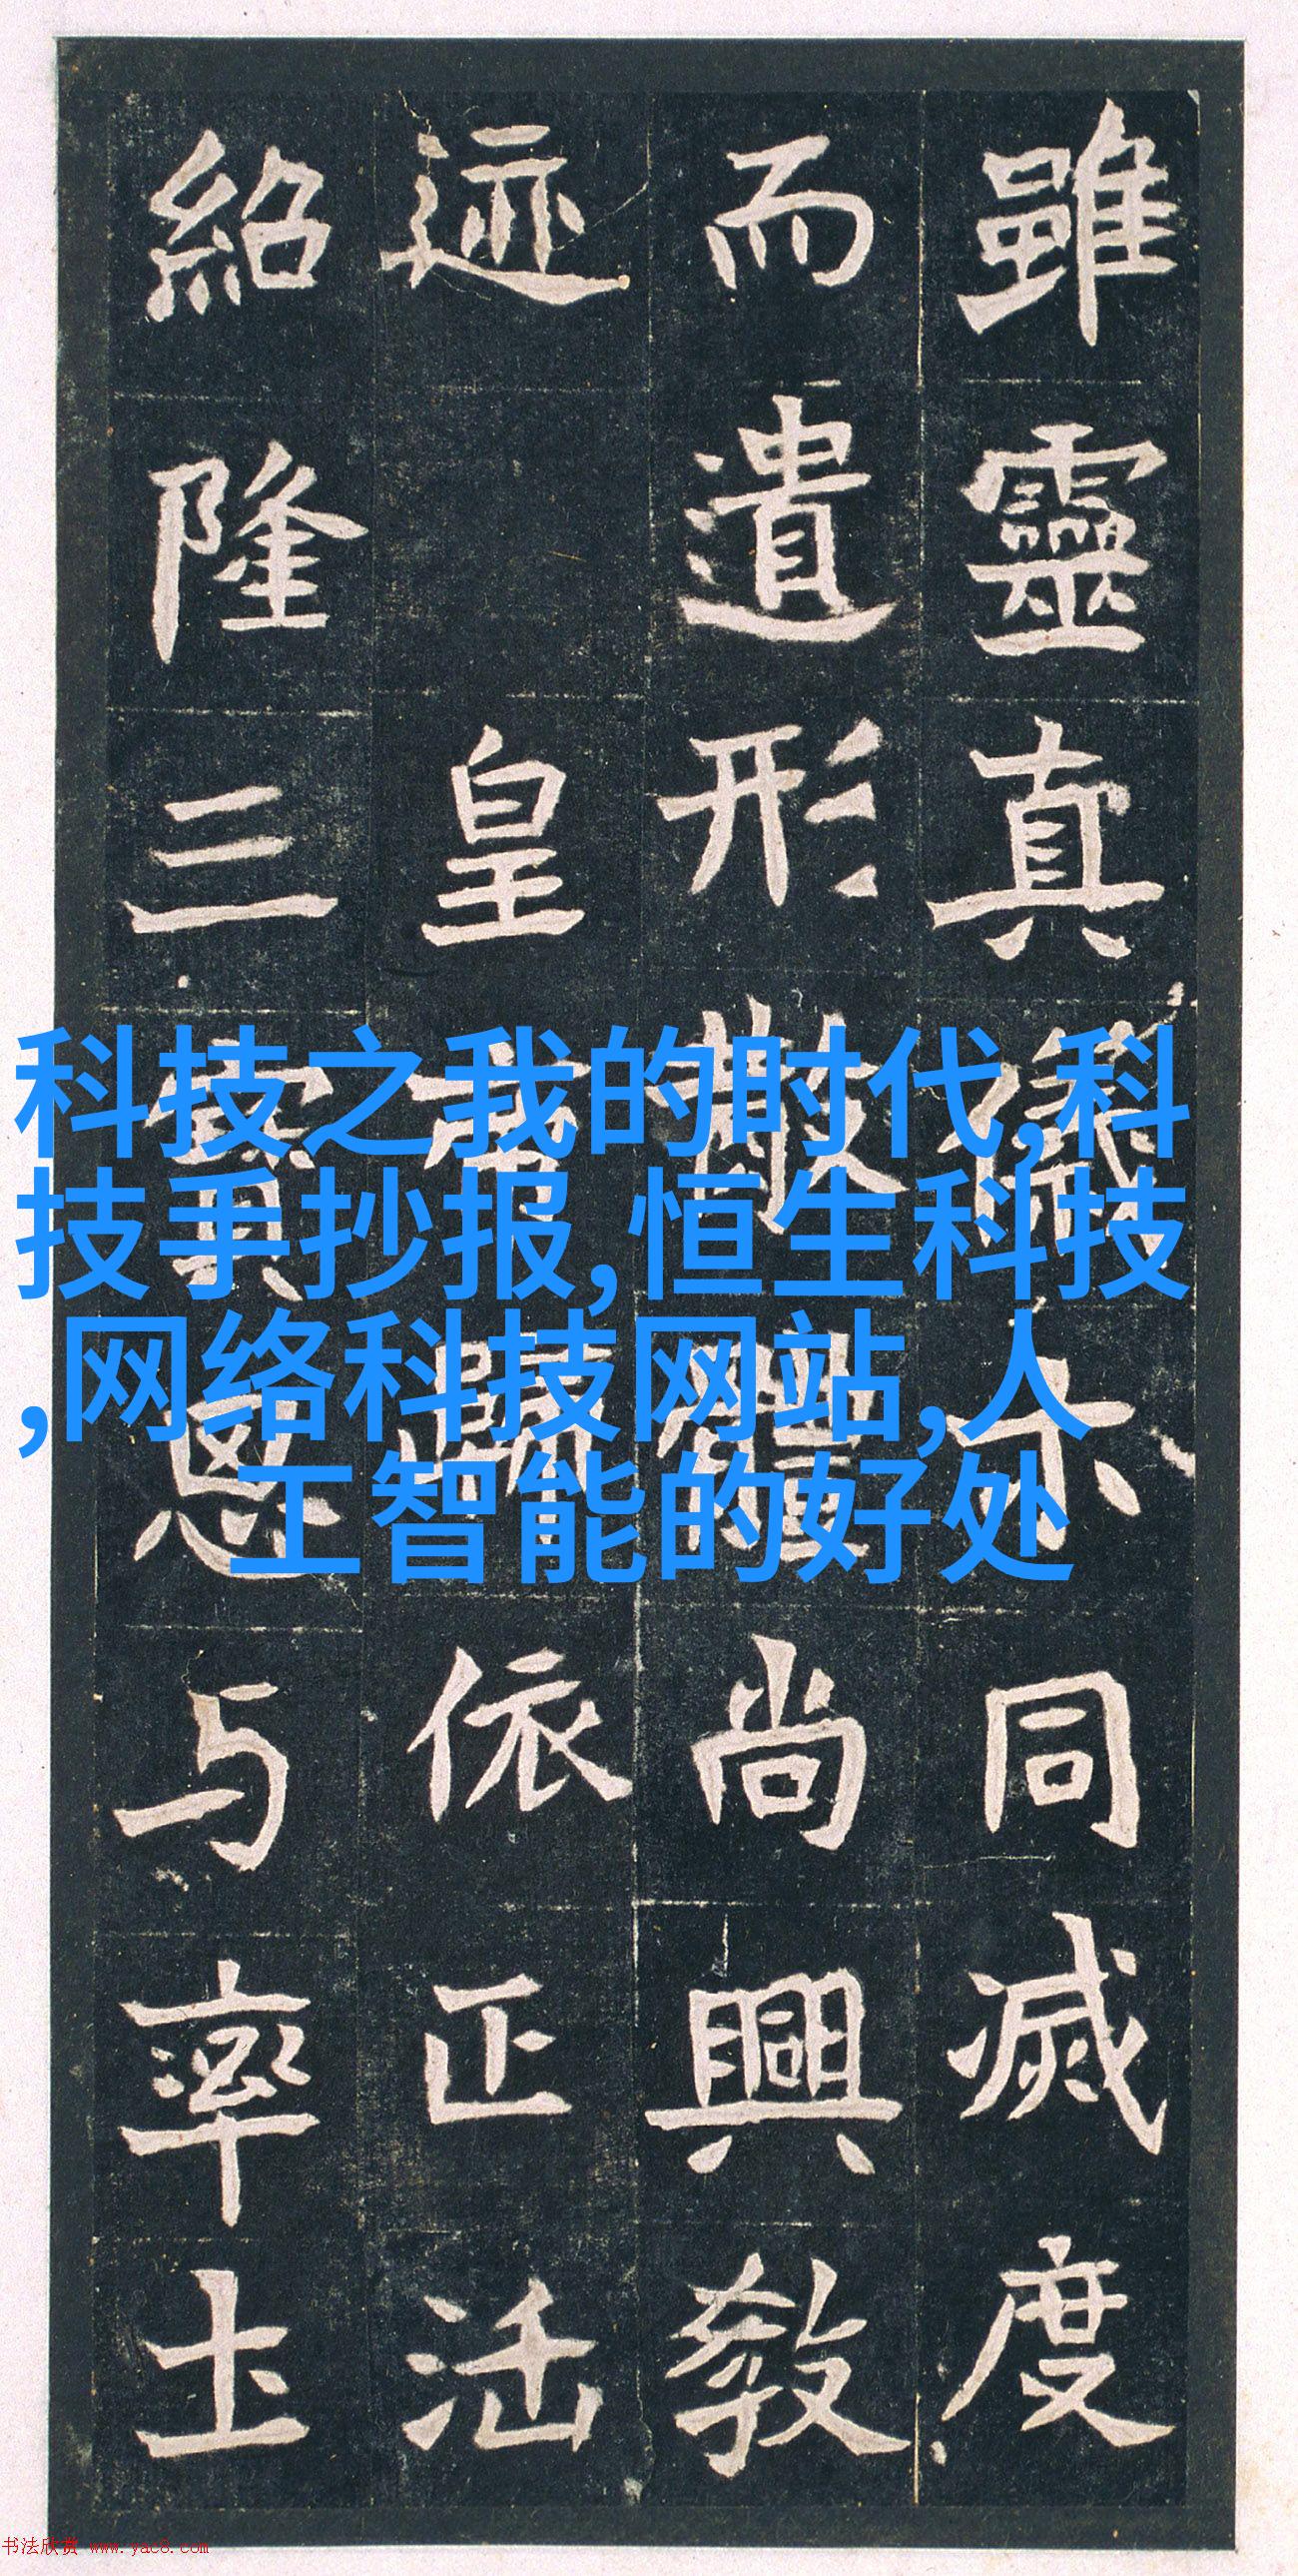 雖靈真儀示同滅度
而遺形散體尚興教
迹 皇帝歸依正法
紹隆三寶思与率土
科技之我的时代,科
技手抄报,恒生科技
,网络科技网站,人
工智能的好处
书法欣赏 www.yac8.com